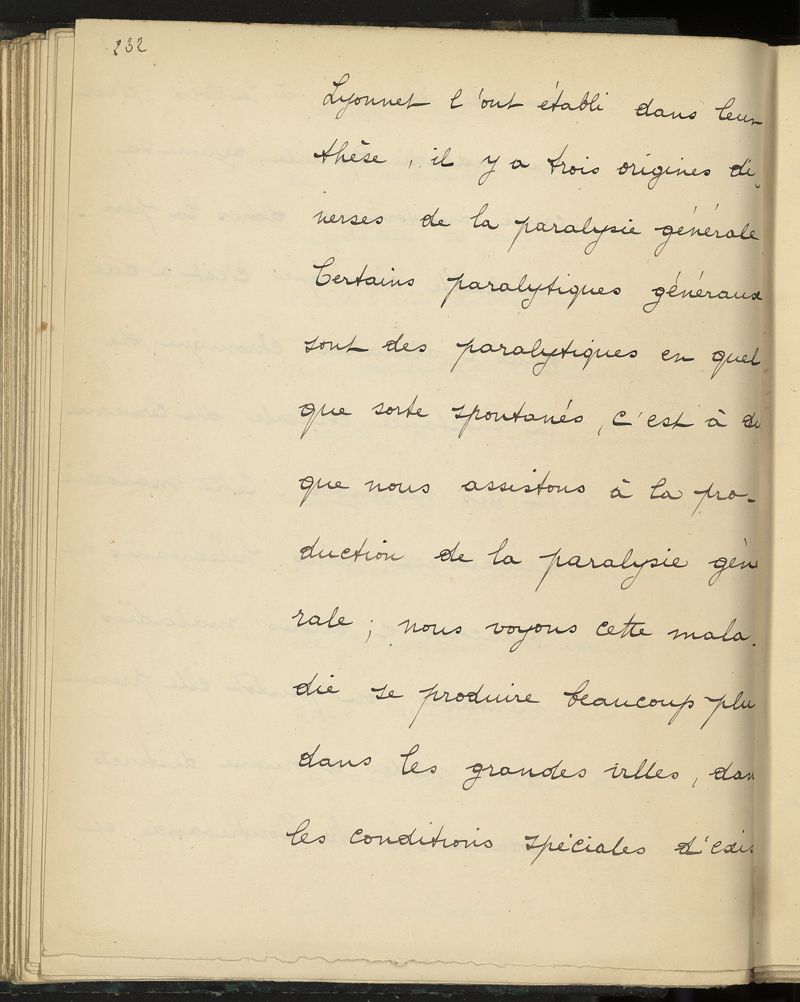 232
Lyonnet l'ont établi dans leur
thèse, il y a trois origines di-
verses de la paralysie générale
Certains paralytiques généraux
sont des paralytiques en quel
que sorte spontanés, c'est à di
que nous assistons à la pro-
duction de la paralysie géné
rale ; nous voyons cette mala-
die se produire beaucoup plu
dans les grandes villes, dan
les conditions spéciales d'exis